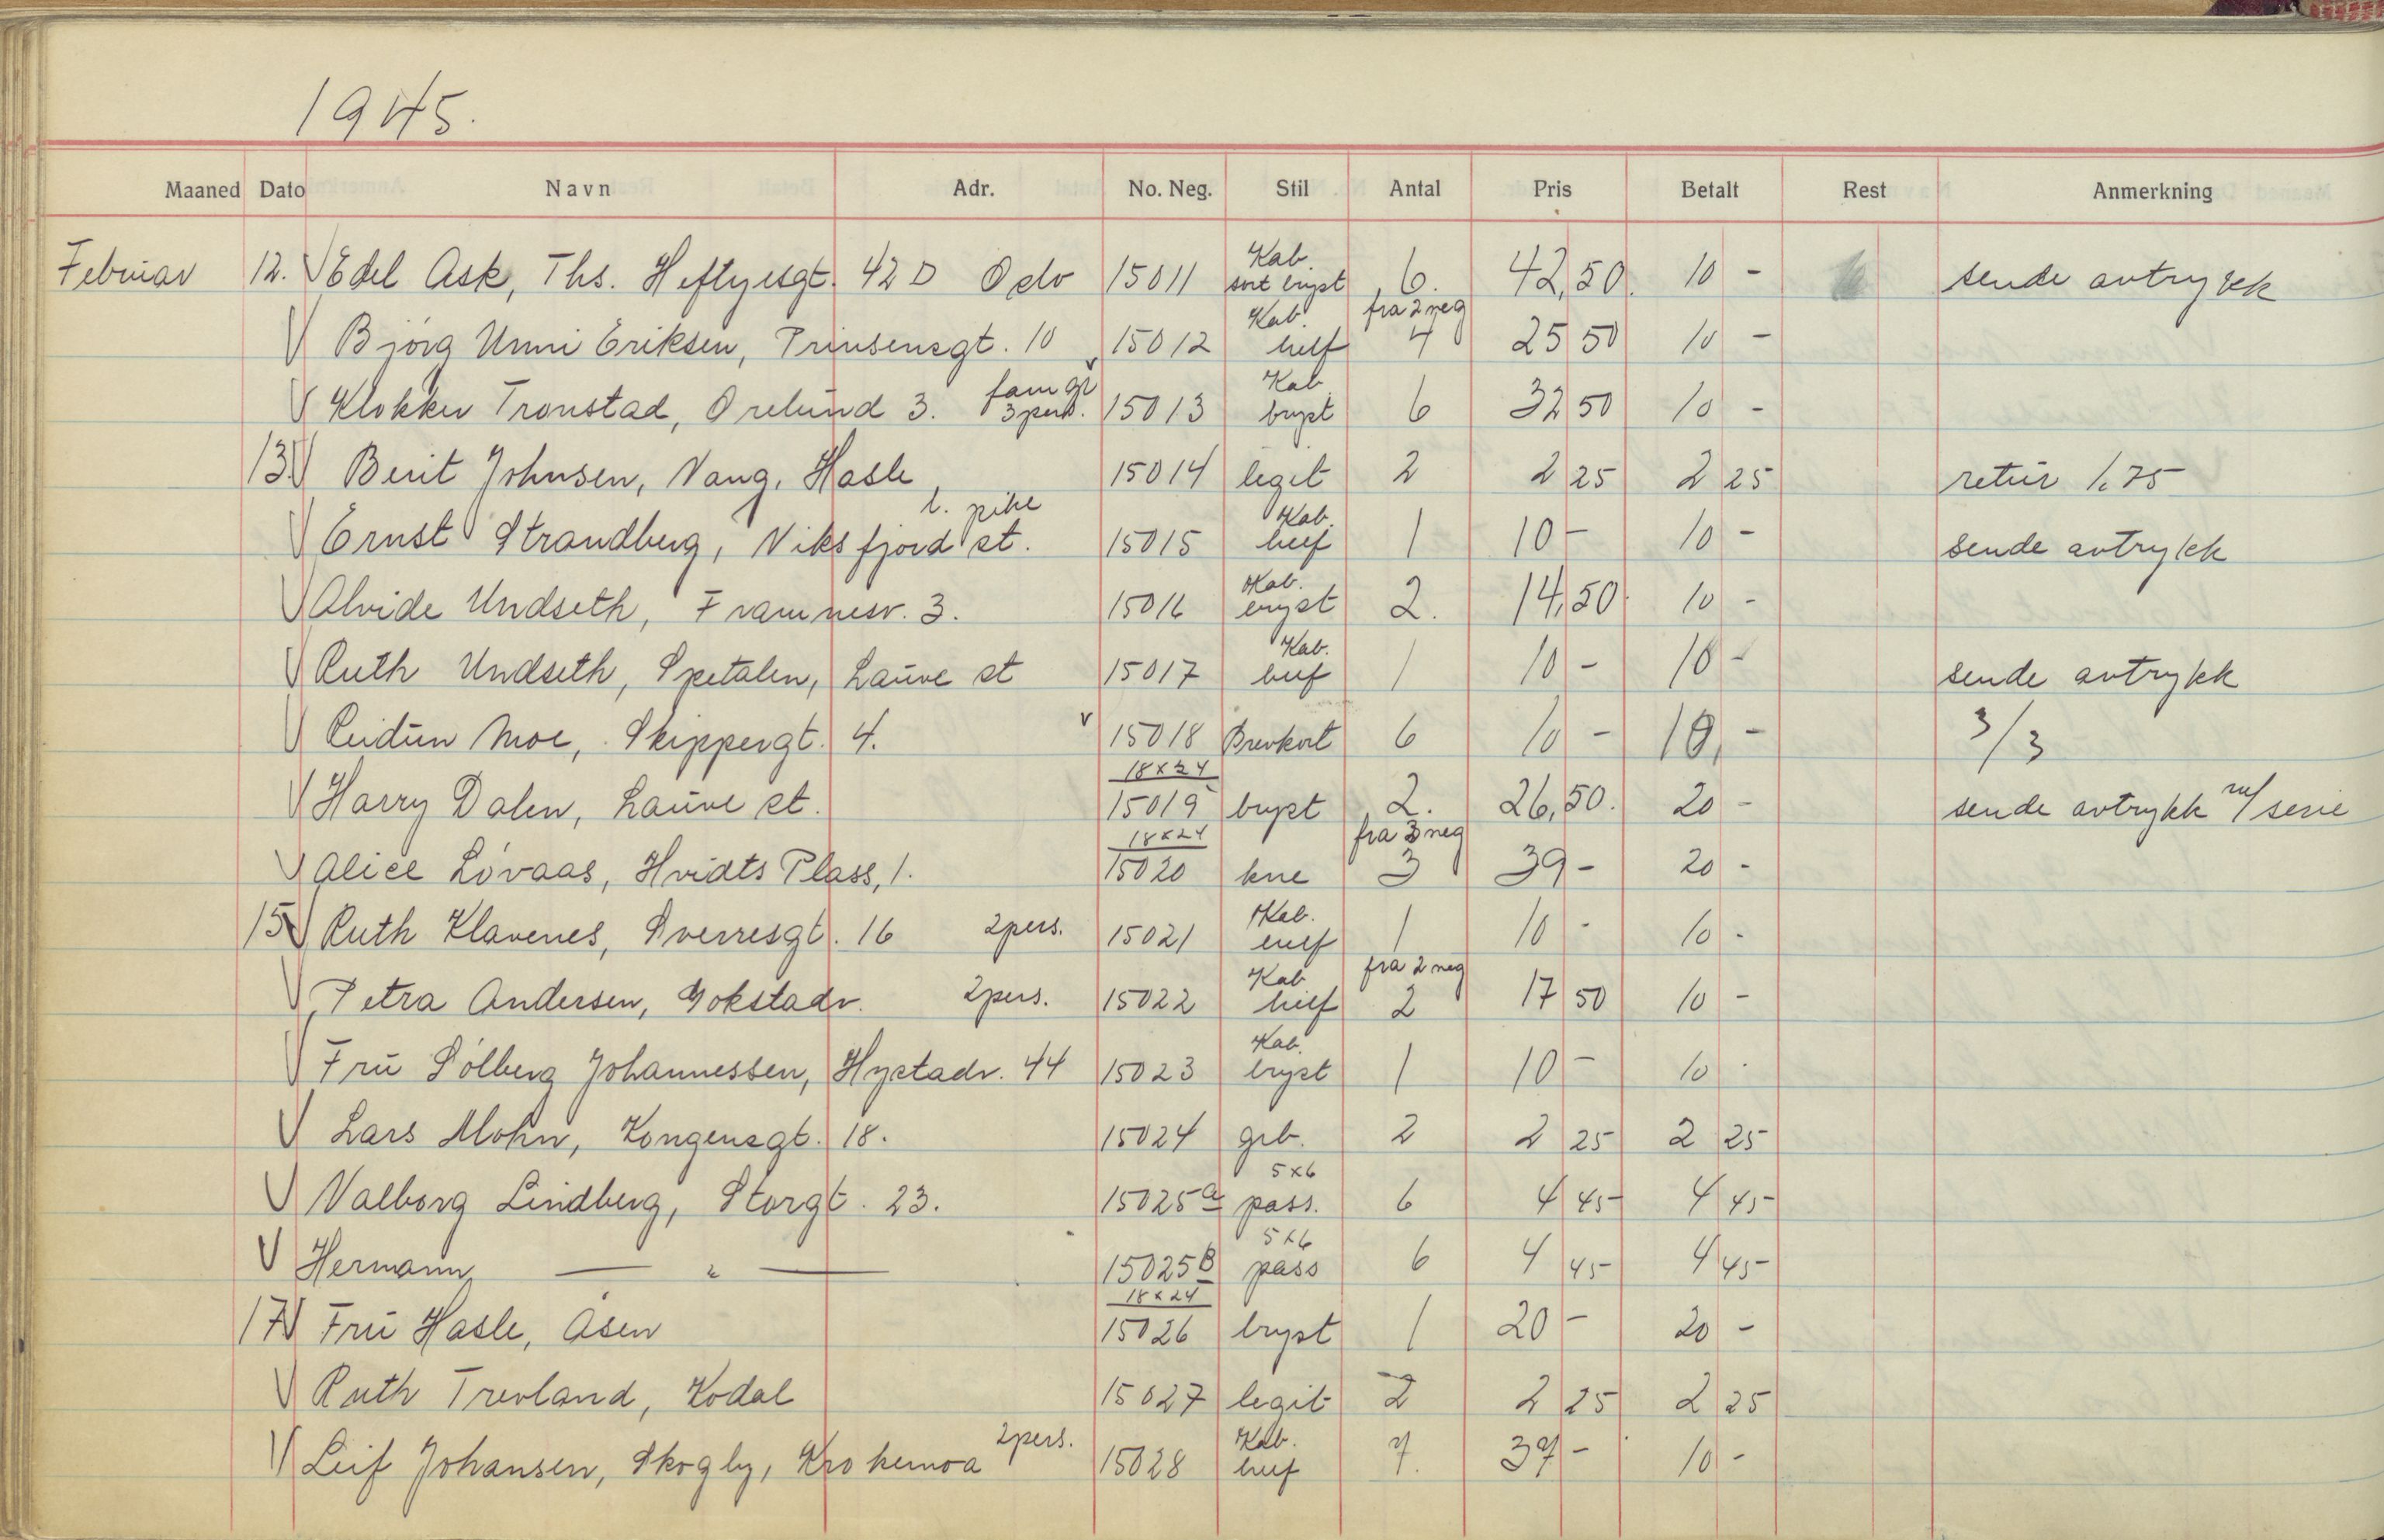 1945.
Maaned Dato Navn Adr. No. Neg. Stil Antal Pris Betalt Rest Anmerkning
Februar 12. Edel Ask, Ths. Heftyesgt. 42 D Oslo 15011 Kab sort bryst 6. 42,50. 10 - sende avtrykk
Bjørg Unni Eriksen, Prinsensgt. 10 15012 Kab. helf fra 2 neg 4 25 50 10 -
Klokker Tronstad, Orelund 3. fam gr 3 pers. 15013 Kab bryst 6 32 50 10 -
13. Berit Johnsen, Vang, Hasle 15014 legit 2 2 25 2 25 retur 1.75
Ernst Strandberg, Viksfjord st. l. pike 15015 Kab. helf 1 10 - 10 - sende avtrykk
Alvide Undseth, Framnesv. 3. 15016 Kab. bryst 2. 14,50 10 -
Ruth Undseth, Spetalen, Lauve st 15017 Kab. helf 1 10 - 10 - sende avtrykk
Reidun Moe, Skippergt. 4. v 15018 Brevkort 6 10 - 10, - 3/3
Harry Dalen, Lauve st. 18x24 15019 bryst 2. 26,50. 20 - sende avtrykk m/ serie
Alice Lóvaas, Hvidts Plass, 1. 18x24 15020 kne fra 3 neg 3 39 - 20 -
15 Ruth Klavenes, Sverresgt. 16 2 pers. 15021 Kab. helf 1 10 - 10 -
Petra Andersen, Gokstadv. 2 pers. 15022 Kab helf fra 2 neg 2 17 50 10 -
Fru Sólberg Johannessen, Hystadv. 44 15023 Kab. bryst 1 10 - 10 -
Lars Mohn, Kongensgt. 18. 15024 grb. 2 2 25 2 25
Valborg Lindberg, Storgt. 23. 15025a 5x6 pass. 6 4 45 4 45
Hermann — " — 15025B 5x6 pass 6 4 45 4 45
17 Fru Hasle, Åsen 18x24 15026 bryst 1 20 - 20 -
Ruth Trevland, Kodal 15027 legit 2 2 25 2 25
Leif Johansen, Skogly, Krokemoa 2 pers. 15028 Kab. helf 7. 37 - 10 -